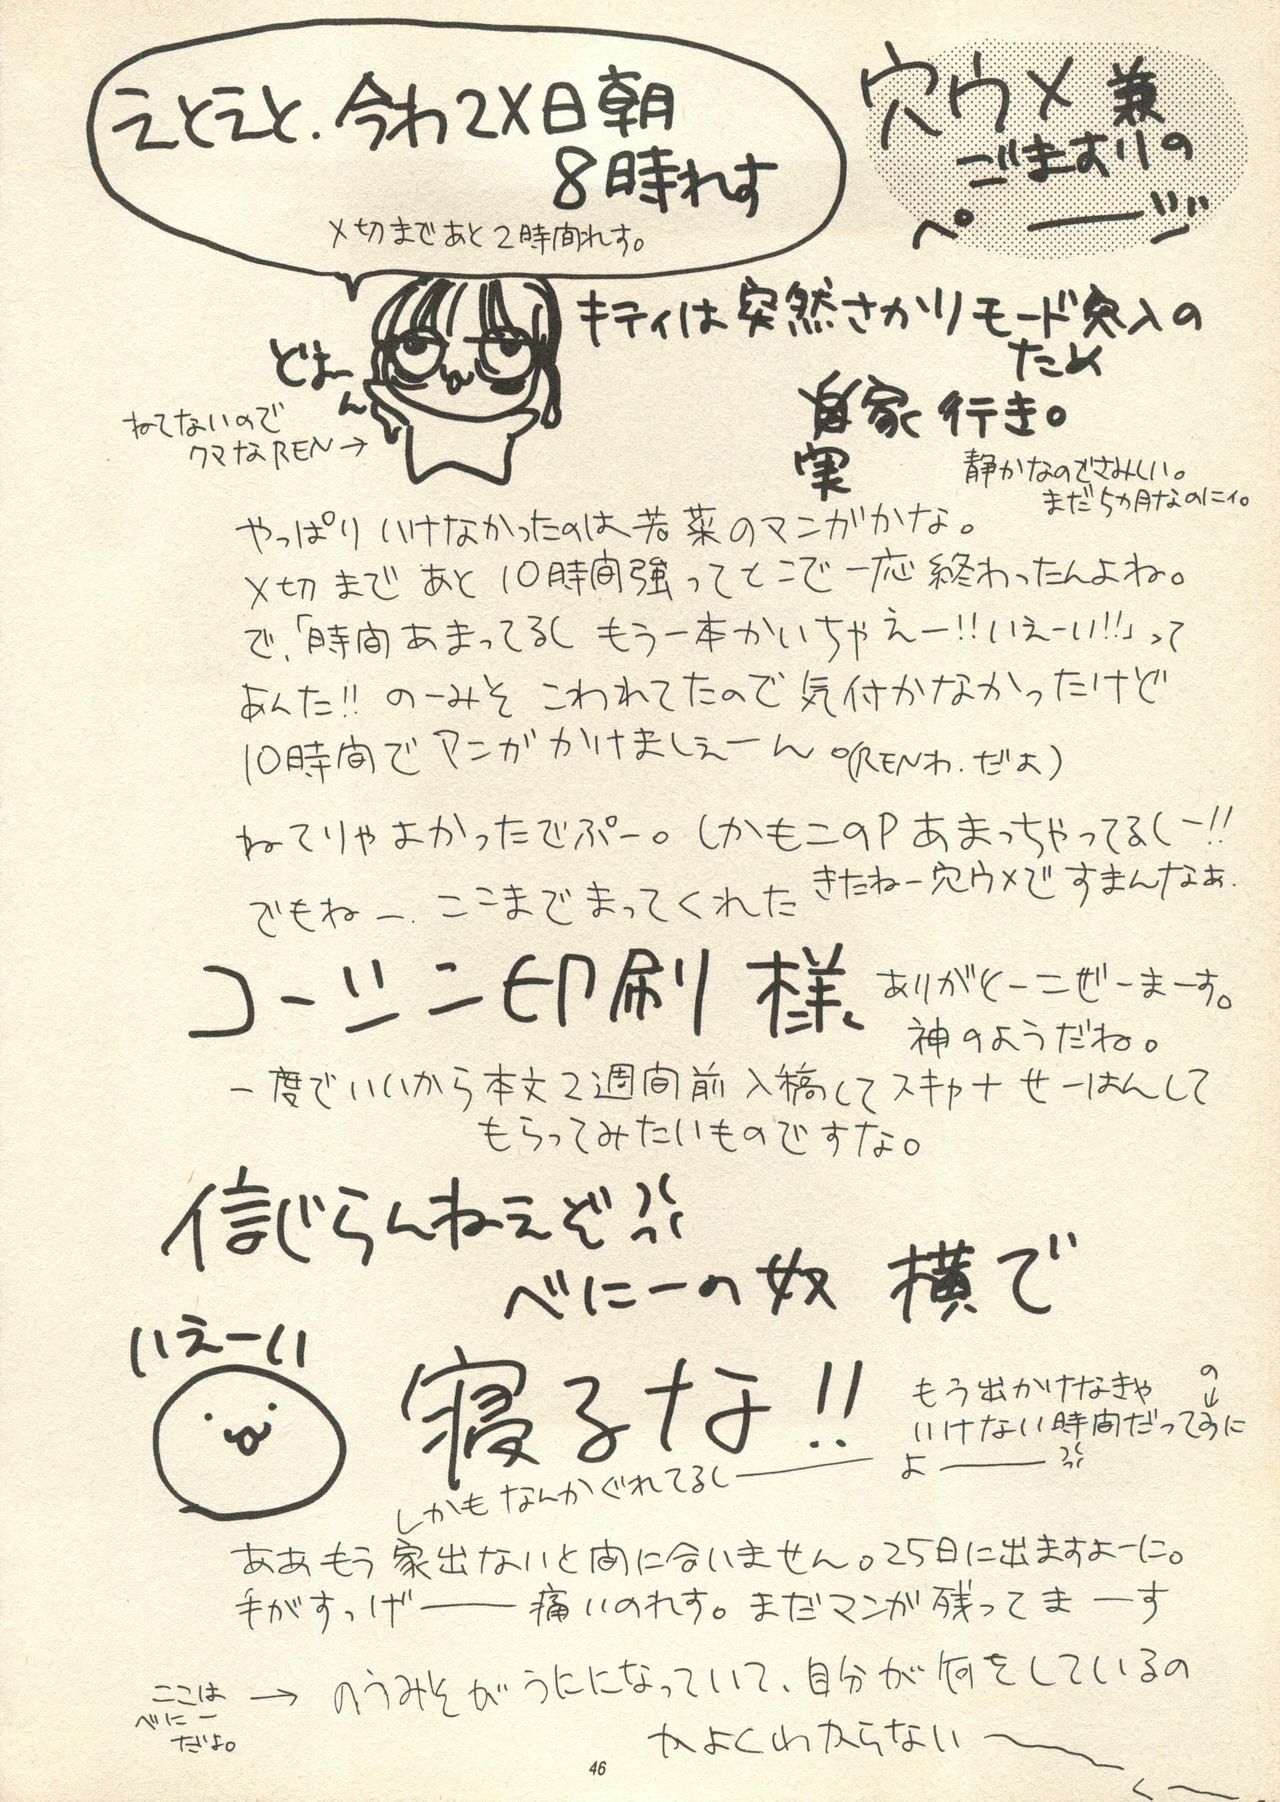 穴ウメ兼
ごますりの
ページ
えとえと、今わ2X日朝
8時れす
〆切まであと2時間れす。
どよーん
ねてないので
クマなREN→
キティは突然さかりモード突入の
ため
実家行き。
静かなのでさみしい。
まだ5ヵ月なのにィ。
やっぱりいけなかったのは若菜のマンガかな。
〆切まであと10時間強ってとこで一応終わったんよね。
で、「時間あまってるしもう一本かいちゃえー!!いえーい!!」って
あんた!!のーみそこわれてたので気付かなかったけど
10時間でマンガかけましぇーん。(RENわ.だよ)
ねてりゃよかったでぷー。しかもこのPあまっちゃってるしー!!
きたねー穴ウメですまんなぁ.
でもねー.ここまでまってくれた
コーシン印刷様、
ありがとーごぜーまーす。
神のようだね。
一度でいいから本文2週間前入稿してスキャナせーはんして
もらってみたいものですな。
信じらんねえぞ
べにーの奴横で
いえーい
寝るな!!
もう出かけなきゃ
いけない時間だってのに
よー
しかもなんかぐれてるしー
ああもう家出ないと間に合いません。25日に出ますよーに。
手がすっげー痛いのれす。まだマンガ残ってまーす
ここは
べにー
だよ。
→のうみそがうにになっていて、自分が何をしているの
かよくわからない〜
46